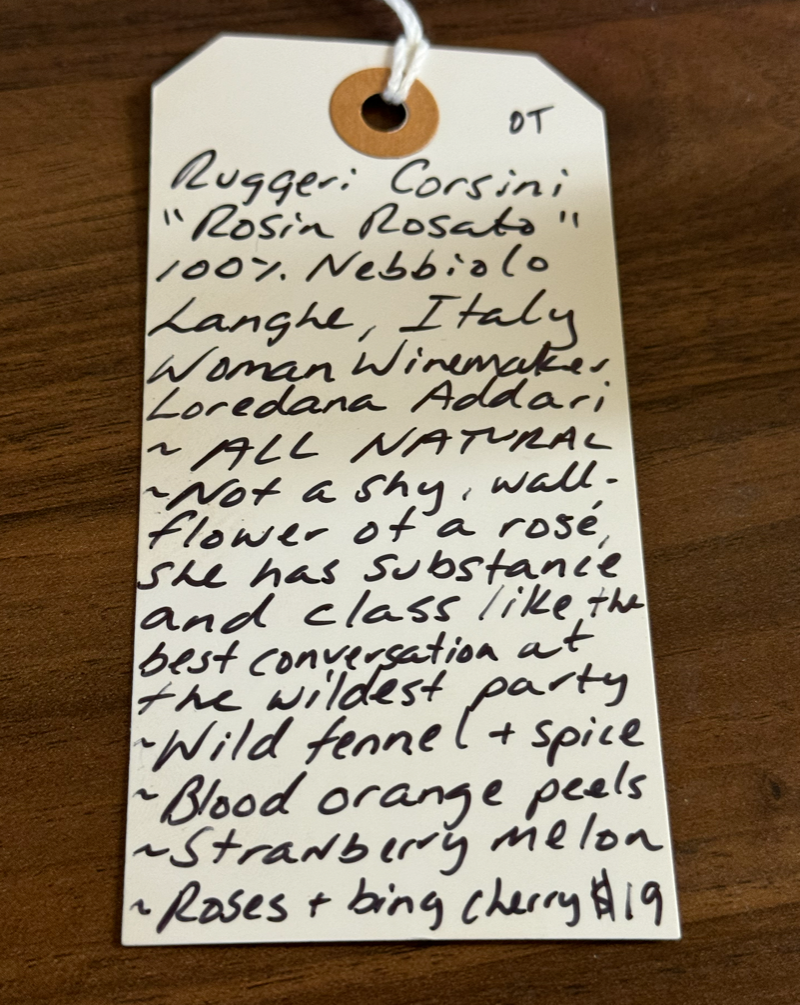 OT
Ruggeri Corsini
"Rosin Rosato"
100% Nebbiolo
Langhe, Italy
Woman Winemaker
Loredana Addari
~ ALL NATURAL
~Not a shy, wall-
flower of a rosé,
she has substance
and class like the
best conversation at
the wildest party
~Wild fennel + spice
~Blood orange peels
~Strawberry melon
~Roses + bing cherry $19